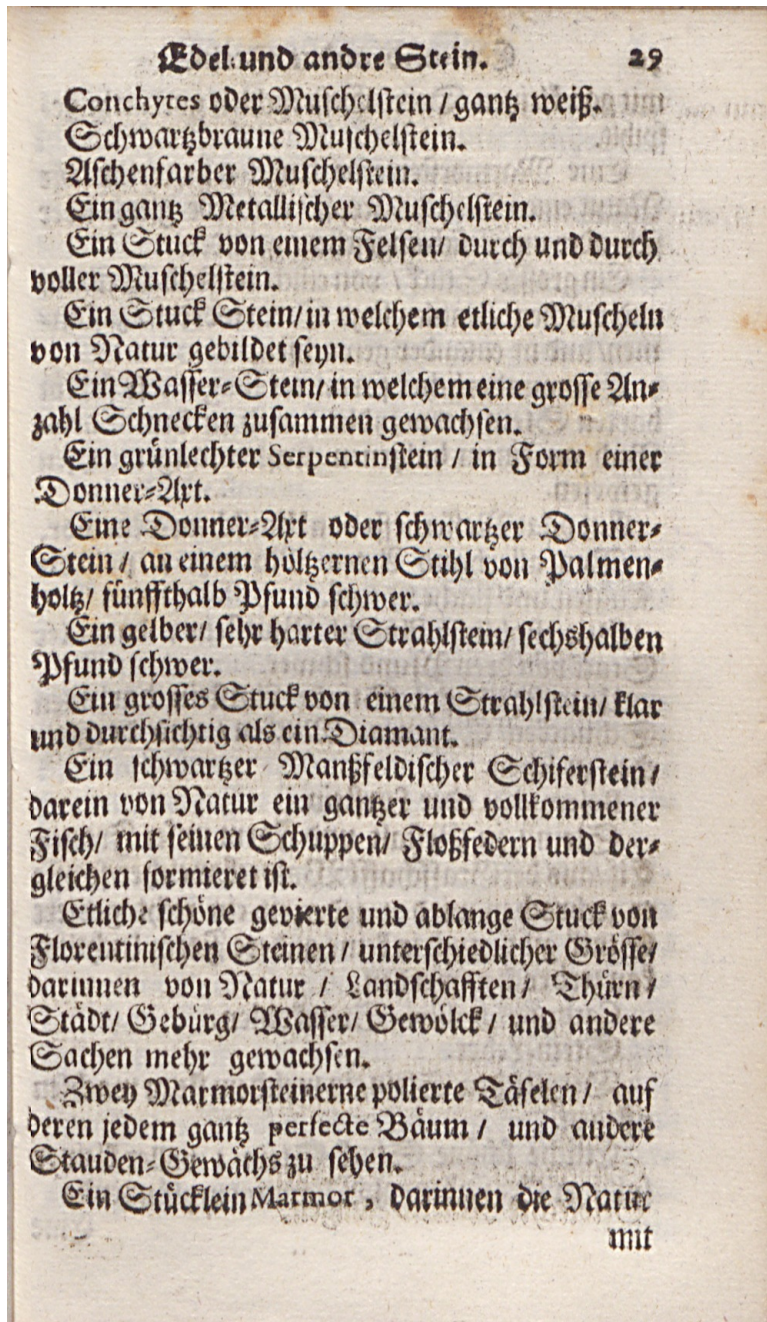 Edel und andre Stein. 29
Conchytes oder Muschelstein / gantz weiß.
Schwartzbraune Muschelstein.
Aschenfarber Muschelstein.
Ein gantz Metallischer Muschelstein.
Ein Stuck von einem Felsen/ durch und durch
voller Muschelstein.
Ein Stuck Stein/ in welchem etliche Muscheln
von Natur gebildet seyn.
Ein Wasser-Stein/ in welchem eine grosse An-
zahl Schnecken zusammen gewachsen.
Ein grünlechter Serpentinstein / in Form einer
Donner-Axt.
Eine Donner-Axt oder schwartzer Donner-
Stein / an einem höltzernen Stihl von Palmen-
holtz/ fünffthalb Pfund schwer.
Ein gelber/ sehr harter Strahlstein/ sechshalben
Pfund schwer.
Ein grosses Stuck von einem Strahlstein/ klar
und durchsichtig als ein Diamant.
Ein schwartzer Manßfeldischer Schiferstein /
darein von Natur ein gantzer und vollkommener
Fisch/ mit seinen Schuppen/ Floßfedern und der-
gleichen formieret ist.
Etliche schöne gevierte und ablange Stuck von
Florentinischen Steinen / unterschiedlicher Grösse/
darinnen von Natur / Landschafften / Thürn /
Städt/ Gebürg/ Wasser/ Gewölck / und andere
Sachen mehr gewachsen.
Zwey Marmorsteinerne polierte Täfelen / auf
deren jedem gantz perfecte Bäum / und andere
Stauden-Gewächs zu sehen.
Ein Stücklein Marmor, darinnen die Natur
mit